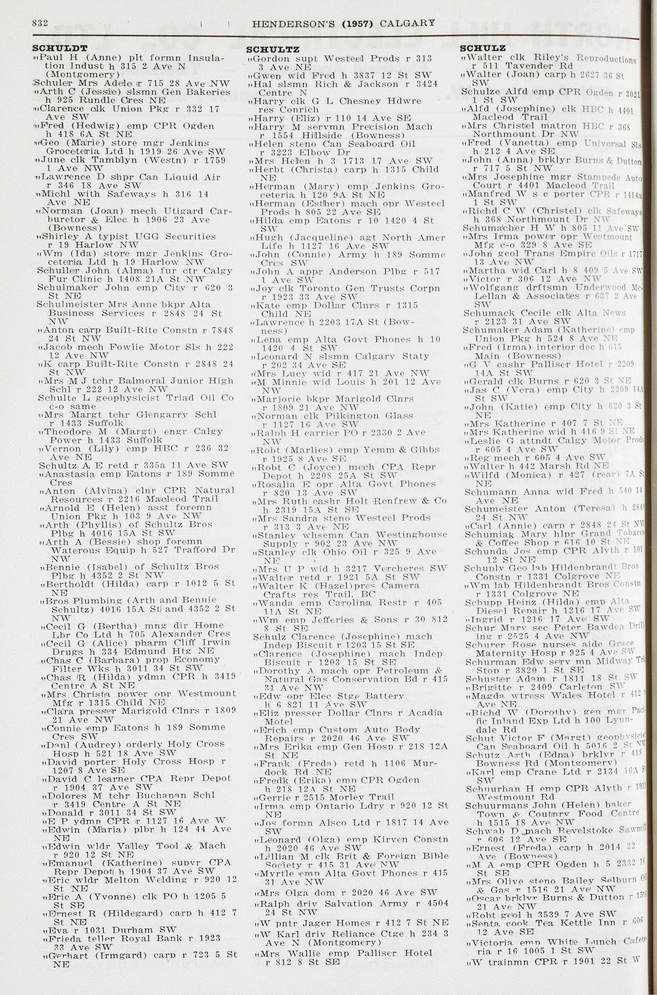 832
HENDERSON'S (1957) CALGARY
SCHULDT
"Paul H (Anne) plt formn Insula-
tion Indust h 315 2 Ave N
(Montgomery)
Schuler Mrs Adele r 715 28 Ave NW
"Arth C (Jessie) slsmn Gen Bakeries
h 925 Rundle Cres NE
"Clarence clk Union Pkg r 332 17
Ave SW
"Fred (Hedwig) emp CPR Ogden
h 418 6A St NE
"Geo (Marie) store mgr Jenkins
Groceteria Ltd h 1919 26 Ave SW
"June clk Tamblyn (Westn) r 1759
1 Ave NW
"Lawrence D shpr Can Liquid Air
r 346 18 Ave SW
"Michl with Safeways h 316 14
Ave NE
"Norman (Joan) mech Utigard Car-
buretor & Elec h 1906 23 Ave
(Bowness)
"Shirley A typist UGG Securities
r 19 Harlow NW
"Wm (Ida) store mgr Jenkins Gro-
ceteria Ltd h 19 Harlow NW
Schuller John (Alma) fur ctr Calgy
Fur Clinic h 1408 21A St NW
Schulmaker John emp City r 620 3
St NE
Schulmeister Mrs Anne bkpr Alta
Business Services r 2848 24 St
NW
"Anton carp Built-Rite Constn r 7848
24 St NW
"Jacob mech Fowlie Motor Sls h 222
12 Ave NW
"K carp Built-Rite Constn r 2848 24
St NW
"Mrs M J tchr Balmoral Junior High
Schl r 222 12 Ave NW
Schulte L geophysicist Triad Oil Co
c-o same
"Mrs Margt tchr Glengarry Schl
r 1433 Suffolk
"Theodore M (Margt) engr Calgy
Power h 1433 Suffolk
"Vernon (Lily) emp HBC r 236 32
Ave NE
Schultz A E retd r 335a 11 Ave SW
"Anastasia emp Eatons r 189 Somme
Cres
"Anton (Alvina) clnr CPR Natural
Resources r 2216 Macleod Trail
"Arnold E (Helen) asst foremn
Union Pkg h 103 9 Ave NW
"Arth (Phyllis) of Schultz Bros
Plbg h 4016 15A St SW
"Arth A (Bessie) shop foremn
Waterous Equip h 527 Trafford Dr
NW
"Bennie (Isabel) of Schultz Bros
Plbg h 4352 2 St NW
"Bertholdt (Hilda) carp r 1012 5 St
NE
"Bros Plumbing (Arth and Bennie
Schultz) 4016 15A St and 4352 2 St
NW
"Cecil G (Bertha) mng dir Home
Lbr Co Ltd h 705 Alexander Cres
"Cecil G (Alice) pharm Cliff Irwin
Drugs h 334 Edmund Htg NE
"Chas C (Barbara) prop Economy
Filter Wks h 3011 34 St SW
"Chas R (Hilda) ydmn CPR h 3419
Centre A St NE
"Mrs Christa power opr Westmount
Mfg r 1315 Child NE
"Clara presser Marigold Clnrs r 1809
21 Ave NW
"Connie emp Eatons h 189 Somme
Cres SW
"Danl (Audrey) orderly Holy Cross
Hosp h 521 18 Ave SW
"David porter Holy Cross Hosp r
1207 8 Ave SE
"David C learner CPA Repr Depot
r 1904 37 Ave SW
"Dolores M tchr Buchanan Schl
r 3419 Centre A St NE
"Donald r 3011 34 St SW
"E P ydmn CPR r 1127 16 Ave W
"Edwin (Maria) plbr h 124 44 Ave
NE
"Edwin wldr Valley Tool & Mach
r 920 12 St NE
"Emanuel (Katherine) supvr CPA
Repr Depot h 1904 37 Ave SW
"Eric wldr Melton Welding r 920 12
St NE
"Eric A (Yvonne) clk PO h 1205 5
St SE
"Ernest R (Hildegard) carp h 412 7
St NE
"Eva r 1031 Durham SW
"Frieda teller Royal Bank r 1923
33 Ave SW
"Gerhart (Irmgard) carp r 723 5 St
NE
SCHULTZ
"Gordon supt Westeel Prods r 313
3 Ave NE
"Gwen wid Fred h 3837 12 St SW
"Hal slsmn Rich & Jackson r 3424
Centre N
"Harry clk G L Chesney Hdwre
res Conrich
"Harry (Eliz) r 110 14 Ave SE
"Harry M servmn Precision Mach
r 1554 Hillside (Bowness)
"Helen steno Can Seaboard Oil
r 3223 Elbow Dr
"Mrs Helen h 3 1713 17 Ave SW
"Herbt (Christa) carp h 1315 Child
NE
"Herman (Mary) emp Jenkins Gro-
ceteria h 120 9A St NE
"Herman (Esther) mach opr Westeel
Prods h 805 22 Ave SE
"Hilda emp Eatons r 10 1420 4 St
SW
"Hugh (Jacqueline) agt North Amer
Life h 1127 16 Ave SW
"John (Connie) Army h 189 Somme
Cres SW
"John A appr Anderson Plbg r 517
1 Ave SW
"Joy clk Toronto Gen Trusts Corpn
r 1923 33 Ave SW
"Kate emp Dollar Clnrs r 1315
Child NE
"Lawrence h 2203 17A St (Bow-
ness)
"Lena emp Alta Govt Phones h 10
1420 4 St SW
"Leonard N slsmn Calgary Staty
r 202 34 Ave SE
"Mrs Lucy wid r 417 21 Ave NW
"M Minnie wid Louis h 201 12 Ave
NW
"Marjorie bkpr Marigold Clnrs
r 1809 21 Ave NW
"Norman clk Pilkington Glass
r 1127 16 Ave SW
"Ralph H carrier PO r 2330 2 Ave
NW
"Robt (Marlies) emp Yemm & Gibbs
r 1925 8 Ave SE
"Robt C (Joyce) mech CPA Repr
Depot h 2208 25A St SW
"Rosalia E opr Alta Govt Phones
r 820 13 Ave SW
"Mrs Ruth cashr Holt Renfrew & Co
h 2319 15A St SE
"Mrs Sandra steno Westeel Prods
r 313 3 Ave NE
"Stanley whsemn Can Westinghouse
Supply r 902 23 Ave NW
"Stanley clk Ohio Oil r 325 9 Ave
NE
"Mrs U P wid h 3217 Vercheres SW
"Walter retd r 1921 5A St SW
"Walter K (Hazel) pres Camera
Crafts res Trail, BC
"Wanda emp Carolina Restr r 405
11A St NE
"Wm emp Jefferies & Sons r 30 812
8 St SE
Schulz Clarence (Josephine) mach
Indep Biscuit r 1203 15 St SE
"Clarence (Josephine) mach Indep
Biscuit r 1203 15 St SE
"Dorothy A mach opr Petroleum &
Natural Gas Conservation Bd r 415
31 Ave NW
"Edw opr Elec Stge Battery
h 6 821 11 Ave SW
"Eliz presser Dollar Clnrs r Acadia
Motel
"Erich emp Custom Auto Body
Repairs r 2020 46 Ave SW
"Mrs Erika emp Gen Hosp r 218 12A
St NE
"Frank (Freda) retd h 1106 Mur-
dock Rd NE
"Fredk (Erika) emp CPR Ogden
h 218 12A St NE
"Gerrie r 2515 Morley Trail
"Irma emp Ontario Ldry r 920 12 St
NE
"Jos formn Alsco Ltd r 1817 14 Ave
SW
"Leonard (Olga) emp Kirven Constn
h 2020 46 Ave SW
"Lillian M clk Brit & Foreign Bible
Society r 415 31 Ave NW
"Myrtle emp Alta Govt Phones r 415
31 Ave NW
"Mrs Olga dom r 2020 46 Ave SW
"Ralph driv Salvation Army r 4504
24 St NW
"W pntr Jager Homes r 412 7 St NE
"W Karl driv Reliance Ctge h 234 3
Ave N (Montgomery)
"Mrs Wallie emp Palliser Hotel
r 812 8 St SE
SCHULZ
"Walter clk Riley's Reproductions
r 511 Tavender Rd
"Walter (Joan) carp h 2627 36 St
SW
Schulze Alfd emp CPR Ogden r 3021
1 St SW
"Alfd (Josephine) clk HBC h 4401
Macleod Trail
"Mrs Christel matron HBC r 368
Northmount Dr NW
"Fred (Vanetta) emp Universal Sls
h 212 4 Ave SE
"John (Anna) brklyr Burns & Dutton
r 717 5 St NW
"Mrs Josephine mgr Stampede Auto
Court r 4401 Macleod Trail
"Manfred W s c porter CPR r 1414a
1 St SW
"Richd C W (Christel) clk Safeways
h 368 Northmount Dr NW
Schumacher H W h 805 11 Ave SW
"Mrs Irma power opr Westmount
Mfg c-o 329 8 Ave SE
"John geol Trans Empire Oils r 1717
13 Ave NW
"Martha wid Carl h 8 409 5 Ave SW
"Victor r 306 12 Ave NW
"Wolfgang drftsmn Underwood Mc-
Lellan & Associates r 637 2 Ave
SW
Schumack Cecile clk Alta News
r 2123 31 Ave SW
Schumaker Adam (Katherine) emp
Union Pkg h 524 8 Ave NE
"Fred (Irma) interior dec h 615
Main (Bowness)
"G V cashr Palliser Hotel r 2209
14A St SW
"Gerald clk Burns r 620 3 St NE
"Jas C (Vera) emp City h 2209 14A
St SW
"John (Katie) emp City h 620 3 St
NE
"Mrs Katherine r 407 7 St NE
"Mrs Katherine wid h 416 9 St NE
"Leslie G attndt Calgy Motor Prods
r 605 4 Ave SW
"Reg mech r 605 4 Ave SW
"Walter h 442 Marsh Rd NE
"Wilfd (Monica) r 427 (rear) 7A St
NE
Schumann Anna wid Fred h 540 14
Ave NE
Schumeister Anton (Teresa) h 2848
24 St NW
"Carl (Annie) carp r 2848 24 St NW
Schumiak Mary hlpr Grand Tobacco
& Coffee Shop r 616 10 St NE
Schunda Jos emp CPR Alyth r 101
12 St NE
Schunly Geo lab Hildenbrandt Bros
Constn r 1331 Colgrove NE
"Wm lab Hildenbrandt Bros Constn
r 1331 Colgrove NE
Schupp Heinz (Hilda) emp Alta
Diesel Repair h 1216 17 Ave SW
"Ingrid r 1216 17 Ave SW
Schur Mary sec Peter Bawden Drill-
ing r 2525 4 Ave NW
Schurer Rose nurses aide Grace
Maternity Hosp r 925 4 Ave SW
Schurman Edw serv mn Midway Tr
Stop r 3820 1 St SE
Schuster Adam r 1811 18 St SW
"Brigitte r 2409 Carleton SW
"Magda wtress Wales Hotel r 412
Ave NE
"Richd W (Dorothy) gen mgr Paci-
fic Inland Exp Ltd h 100 Lynn-
dale Rd
Schut Victor F (Margt) geophysicist
Can Seaboard Oil h 5016 2 St NW
Schutz Arth (Edna) brklyr r 418
Bowness Rd (Montgomery)
"Karl emp Crane Ltd r 2134 16A S
SW
Schuurhan H emp CPR Alyth r
Westmount Rd
Schuurmans John (Helen) baker
Town & Country Food Centre
h 1515 18 Ave NW
Schwab D mach Revelstoke Sawmill
r 606 12 Ave SE
"Ernest (Freda) carp h 2014 22
Ave (Bowness)
"M A emp CPR Ogden h 5 2332
St SE
"Mrs Olive steno Bailey Selburn Oil
& Gas r 1516 21 Ave NW
"Oscar brklyr Burns & Dutton r
21 Ave NW
"Robt geol h 3539 7 Ave SW
"Senta cook Tea Kettle Inn r 606
12 Ave SE
"Victoria emp White Lunch Cafete-
ria r 16 1005 1 St SW
"W trainmn CPR r 1901 22 St W